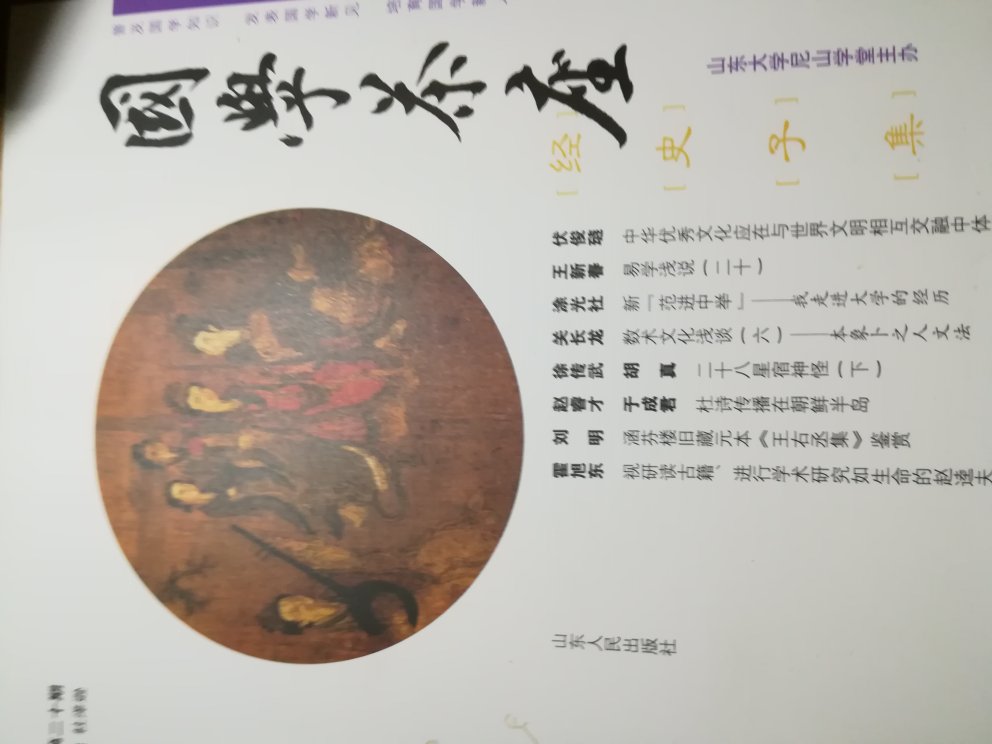 普及国学知识 发表国学新见 培育国学新
國學茶座
山东大学尼山学堂主办
[经] [史] [子] [集]
伏俊琏 中华优秀文化应在与世界文明相互交融中体
王新春 易学浅说(二十)
涂光社 新「范进中举」——我走进大学的经历
关长龙 数术文化浅谈(六)——本象卜之人文法
徐传武 胡真 二十八星宿神怪(下)
赵睿才 于成君 杜诗传播在朝鲜半岛
刘明 涵芬楼旧藏元本《王右丞集》鉴赏
霍旭东 视研读古籍、进行学术研究如生命的赵逵夫
山东人民出版社
十期